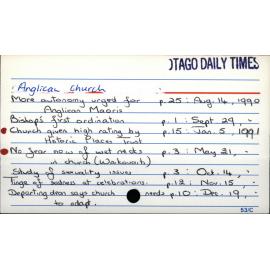 OTAGO DAILY TIMES
Anglican Church
More autonomy urged for p.25 : Aug. 14, 1990
Anglican Maoris
Bishop's first ordination p. 1 : Sept 29, "
Church given high rating by p.15 : Jan. 5, 1991
Historic Places Trust
No fear now of wet necks p. 3 : May 21, "
in church (Waikouaiti)
Study of sexuality issues p. 3 : Oct. 14, "
Tinge of sadness at celebrations. p.12 : Nov. 15, "
Departing dean says church needs p.10 : Dec. 19, "
to adapt.
53/C